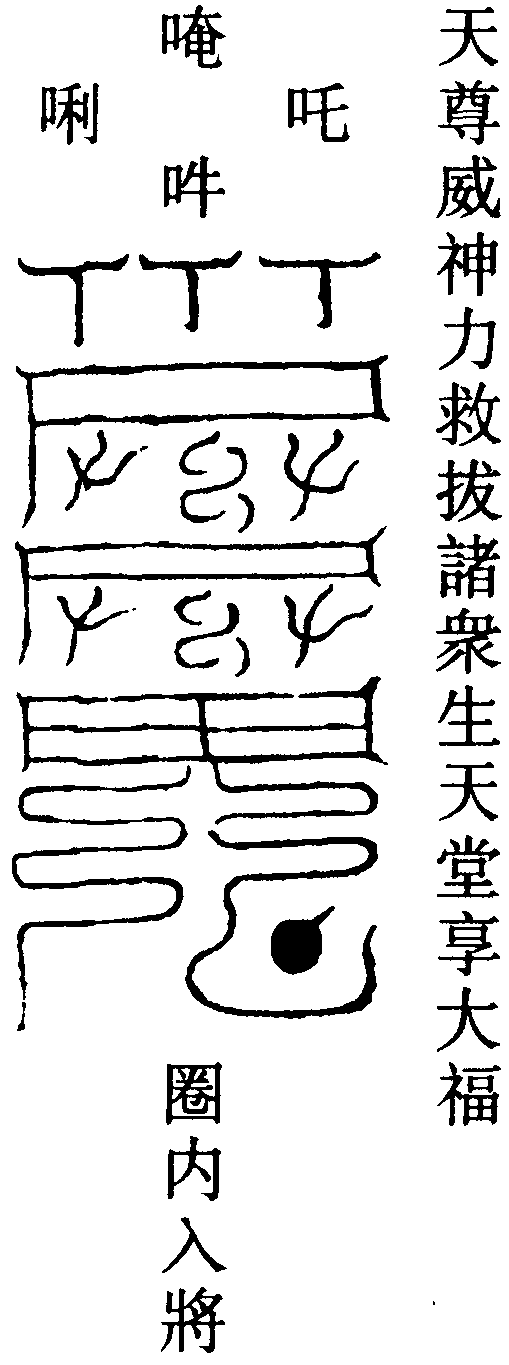 天尊威神力救拔諸衆生天堂享大福
唵
吒
唎
吽
圈内入將